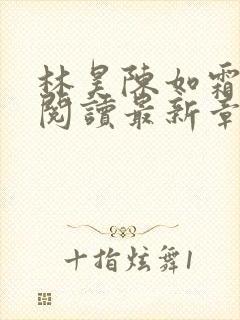 林昊陳如霜
閱讀最新章
十指炫舞1